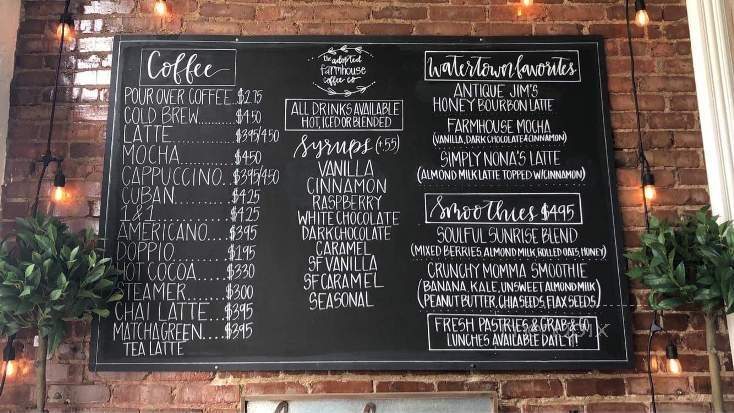 Coffee
POUR OVER COFFEE..$2.75
COLD BREW..........$4.50
LATTE..............$3.95/4.50
MOCHA..............$4.50
CAPPUCCINO...$3.95/4.50
CUBAN...........$4.25
1&1...............$4.25
AMERICANO....$3.95
DOPPIO..........$1.95
HOT COCOA.....$3.30
STEAMER.......$3.00
CHAI LATTE...$3.95
MATCHA GREEN....$3.95
TEA LATTE
the adopted
farmhouse
coffee co
ALL DRINKS AVAILABLE
HOT, ICED OR BLENDED
Syrups (+.55)
VANILLA
CINNAMON
RASPBERRY
WHITE CHOCOLATE
DARK CHOCOLATE
CARAMEL
SF VANILLA
SF CARAMEL
SEASONAL
Watertown favorites
ANTIQUE JIM'S
HONEY BOURBON LATTE
FARMHOUSE MOCHA
(VANILLA, DARK CHOCOLATE & CINNAMON)
SIMPLY NONA'S LATTE
(ALMOND MILK LATTE TOPPED W/CINNAMON)
Smoothies $4.95
SOULFUL SUNRISE BLEND
(MIXED BERRIES, ALMOND MILK, ROLLED OATS, HONEY)
CRUNCHY MOMMA SMOOTHIE
(BANANA, KALE, UNSWEET ALMOND MILK)
(PEANUT BUTTER, CHIA SEEDS, FLAX SEEDS)
FRESH PASTRIES & GRAB & GO
LUNCHES AVAILABLE DAILY!!